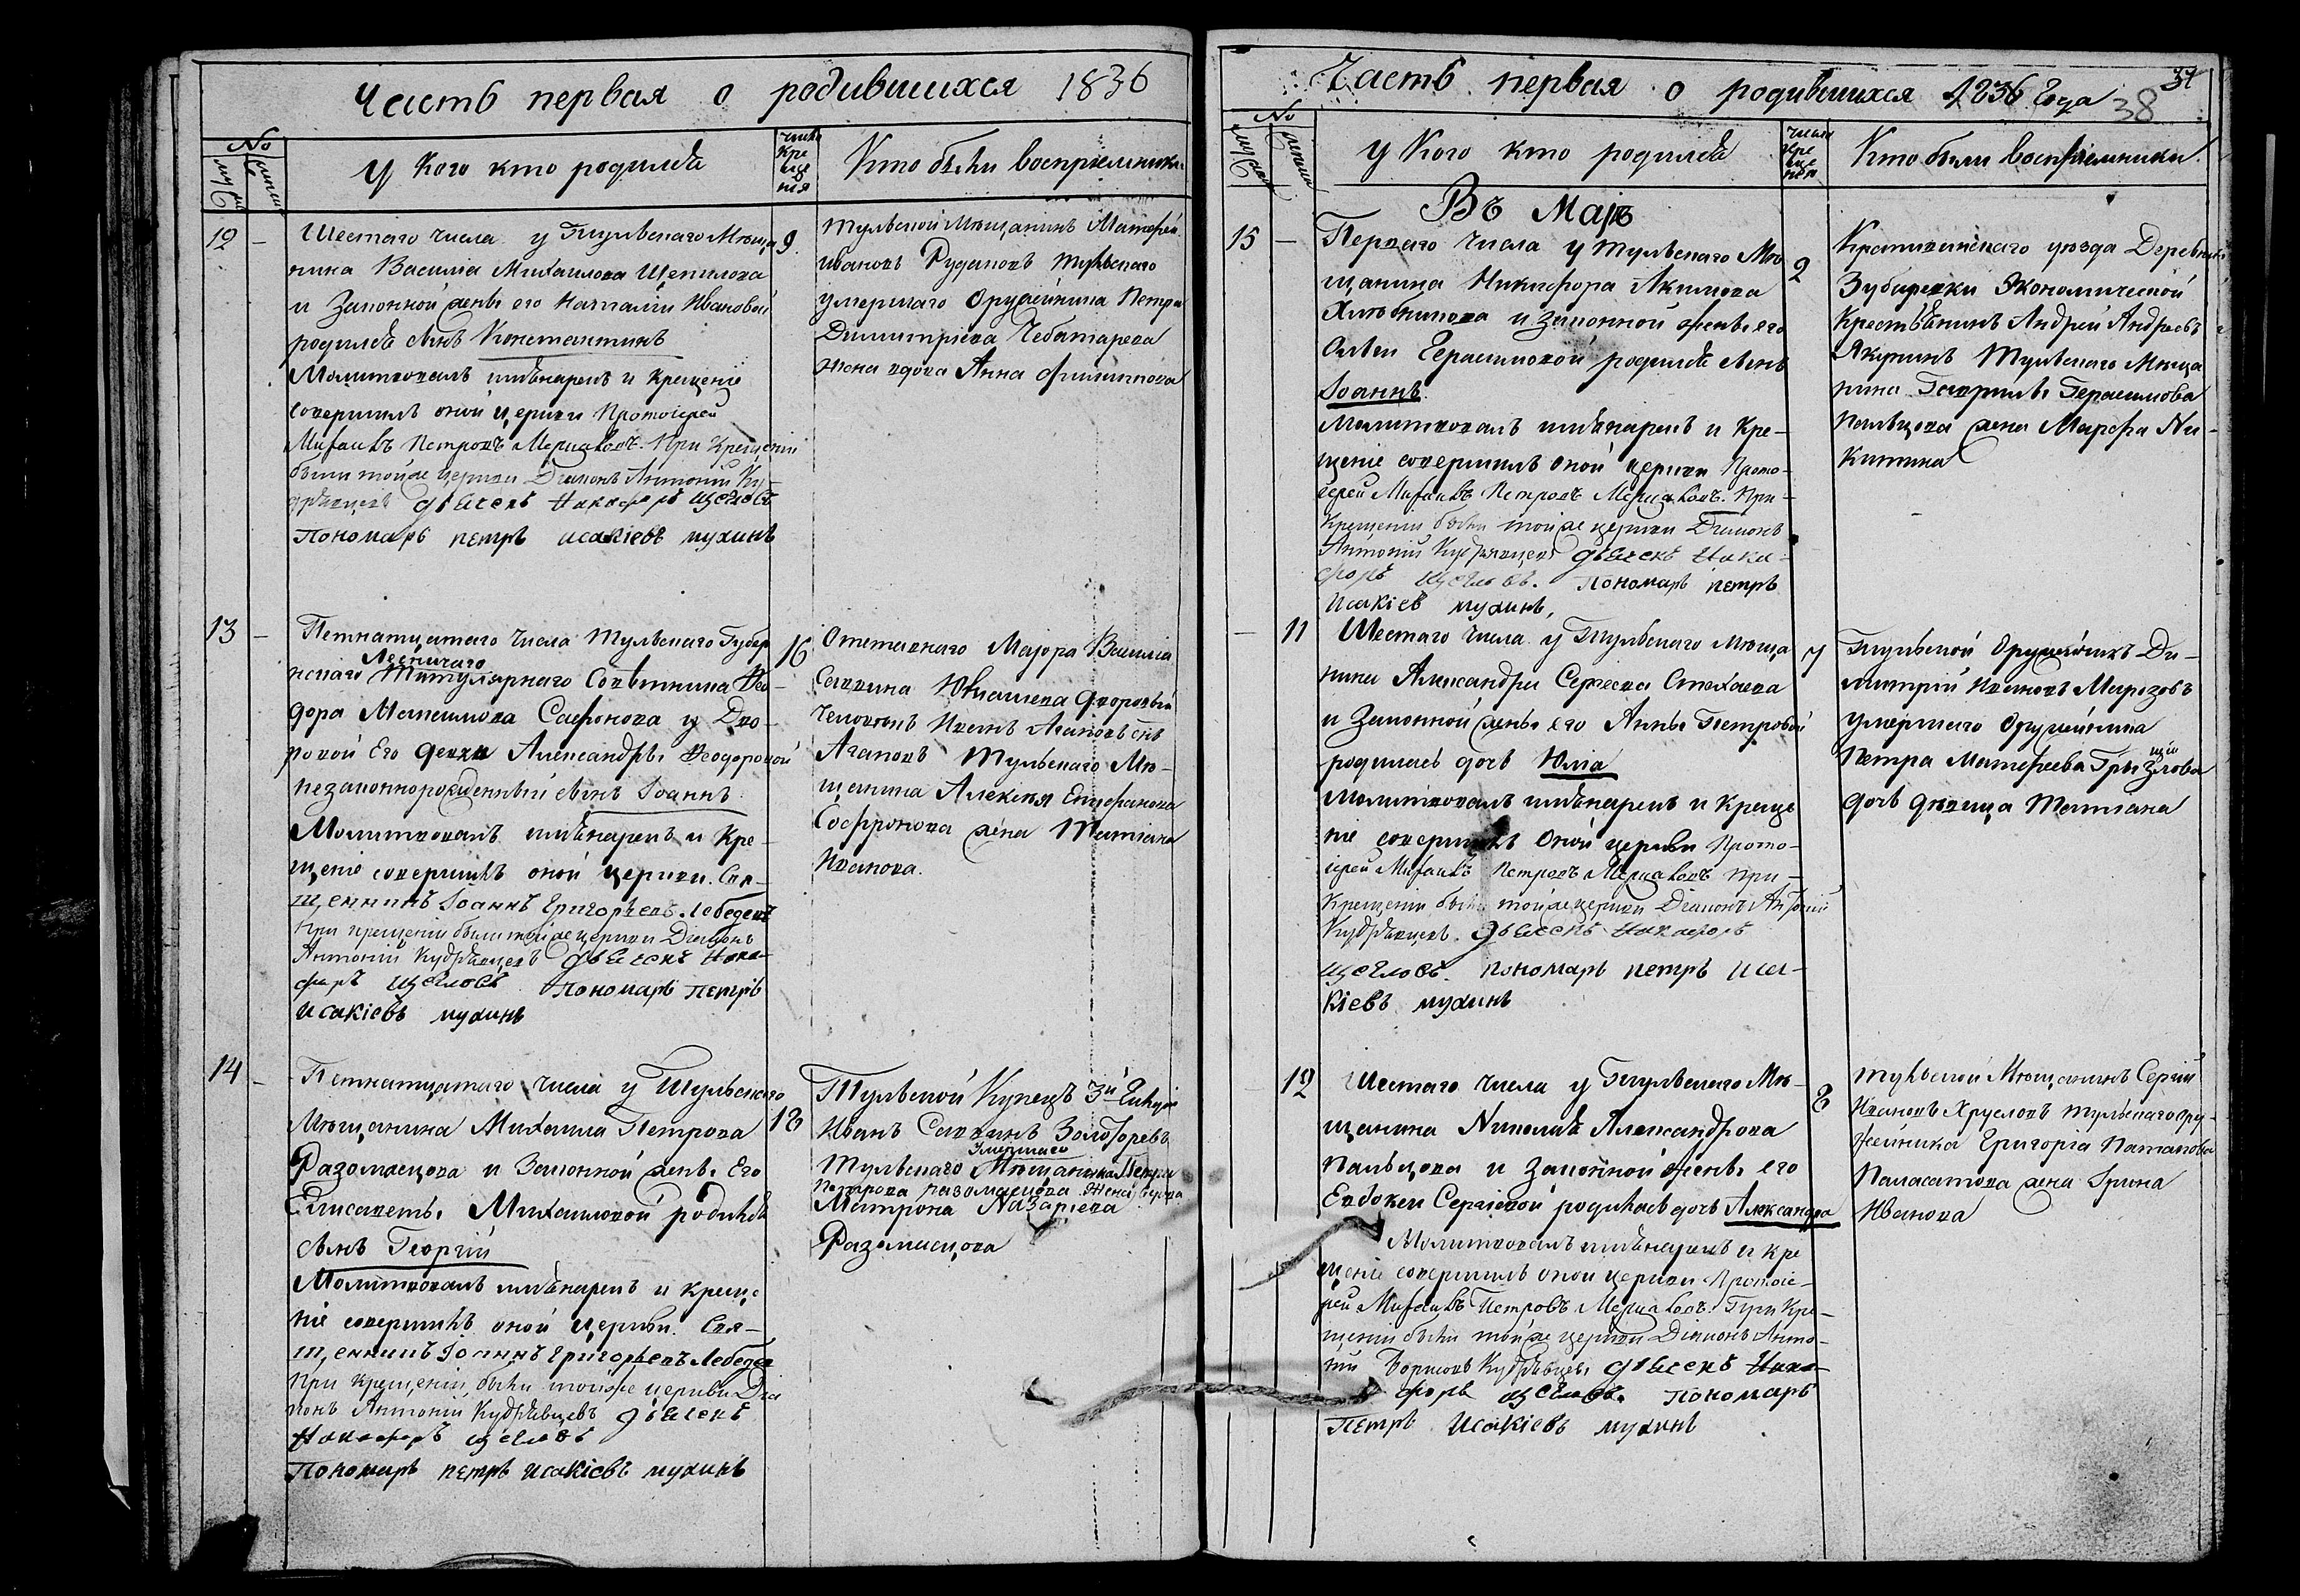 Часть первая о родившихся 1836
№
мужеск
женск
У кого кто родился
число
кре
ще
нія
Кто были воспріемники
12 –
Шестаго числа у Тульскаго Мѣща
нина Василія Михаилова Щепилова
и Законной жены его Наталіи Ивановой
родился сынъ Константинъ
Молитвовалъ имѣнарекъ и Крещеніе
совершилъ оной церкви Протоіерей
Михаилъ Петровъ При Крещеніи
были тойже церкви Діаконъ Антоній Ку-
дрявцевъ дьячекъ Никифоръ Щегловъ
Пономарь петръ исакіевъ мухинъ
9.
Тульской Мѣщанинъ Матфей
ивановъ Рудаковъ Тульскаго
умершаго Оружейника Петра
Димитріева Чеботарева
жена вдова Анна Филиппова
13 –
Петнатцатаго числа Тульскаго Губер
Лесничаго
нскаго Титулярнаго Совѣтника Фео-
дора Максимова Сафонова у Дво-
ровой Его девки Александры Феодоровой
незаконнорожденный сынъ Іоаннъ
Молитвовалъ имѣнарекъ и Кре-
щеніе совершилъ оной церкви. Свя-
щенникъ Іоаннъ Григорьевъ Лебедевъ
При крещеніи были тойже церкви Діаконъ
Антоній Кудрявцевъ дьячекъ Ники-
форъ Щегловъ Пономарь Петръ
исакіевъ мухинъ
16
Отставнаго Маіора Василія
Саввина Юкашева дворовый
человѣкъ Иванъ Агаповъ снъ
Агаповъ Тульскаго Мѣ-
щанина Алексѣя Епифанова
Софронова жена Татіана
Иванова.
14 –
Петнатцатаго числа у Тульскаго
Мѣщанина Михаила Петрова
Разомасцова и Законной жены Его
Елисаветы Михаиловой родился
сынъ Георгій
Молитвовалъ имѣнарекъ и креще
ніе совершилъ оной церкви. Свя-
щенникъ Іоаннъ Григорьевъ Лебедев
При крещеніи были тойже церкви Діа
конъ Антоній Кудрявцевъ дьячекъ
Никифоръ щегловъ
Пономарь петръ исакіевъ мухинъ
18
Тульской Купецъ 3й Гильдіи
Иванъ Саввинъ Золоторевъ
умершаго
Тульскаго Мѣщанина Петра
Петрова разомасцова Жена вдова
Матрона Назарьева
Разомасцова
Часть первая о родившихся 1836 Года
37
38
№
мужеск
женск
У Кого кто родился
число
кре
ще
нія
Кто были воспріемники.
Въ Маіѣ
15 –
Перваго числа у тульскаго Мѣ
щанина Никифора Акимова
Хлѣбникова и законной жены его
Ольги Герасимовой родился сынъ
Іоаннъ.
Молитвовалъ имѣнарекъ и Кре-
щеніе совершилъ оной церкви Прото-
іерей Михаилъ Петровъ При-
Крещеніи были тойже церкви Діаконъ
Антоній Кудрявцевъ дьячекъ Ники-
форъ щегловъ. Пономарь петръ
Исакіев мухинъ,
2
Крапивенскаго уѣзда Деревни
Зубаревки Экономической
Крестьянинъ Андрей Андреевъ
Якунинъ Тульскаго Мѣща
нина Гаврилы Герасимова
Пальцова жена Марфа Ни-
китина
– 11
Шестаго числа у Тульскаго Мѣща
нина Александра Сергеева Стехаева
и Законной жены его Анны Петровой
родилась дочь Юлія
Молитвовалъ имѣнарекъ и Креще
ніе совершилъ Оной церкви Прото-
іерей Михаилъ Петровъ При-
Крещеніи были тойже церкви Діаконъ Антоній
Кудрявцевъ. дьячекъ Никифоръ
щегловъ. пономарь петръ Иса-
кіевъ мухинъ
7
Тульской Оружейникъ Ди-
митрій Ивановъ Марозовъ
умершаго Оружейника
Петра Матфеева Грызлова
дочь девица Татіана
– 12
Шестаго числа у Тульскаго Мѣ-
щанина Николая Александрова
Пальцова и законной жены его
Евдокеи Сергіевой родилась дочь Александра
Молитвовалъ имѣнарекъ и Кре
щеніе совершилъ оной церкви Протоіе-
рей Михаилъ Петровъ При Кре-
щеніи были тойже церкви Діаконъ Анто-
ній Борисовъ Кудрявцевъ дьячекъ Ники-
форъ щегловъ. пономарь
Петръ Исакіевъ мухинъ
8
Тульской Мѣщанинъ Сергій
Ивановъ Хрусловъ тульскаго ору-
жейника Григорія Патапова
Паласатова жена Ірина
Иванова